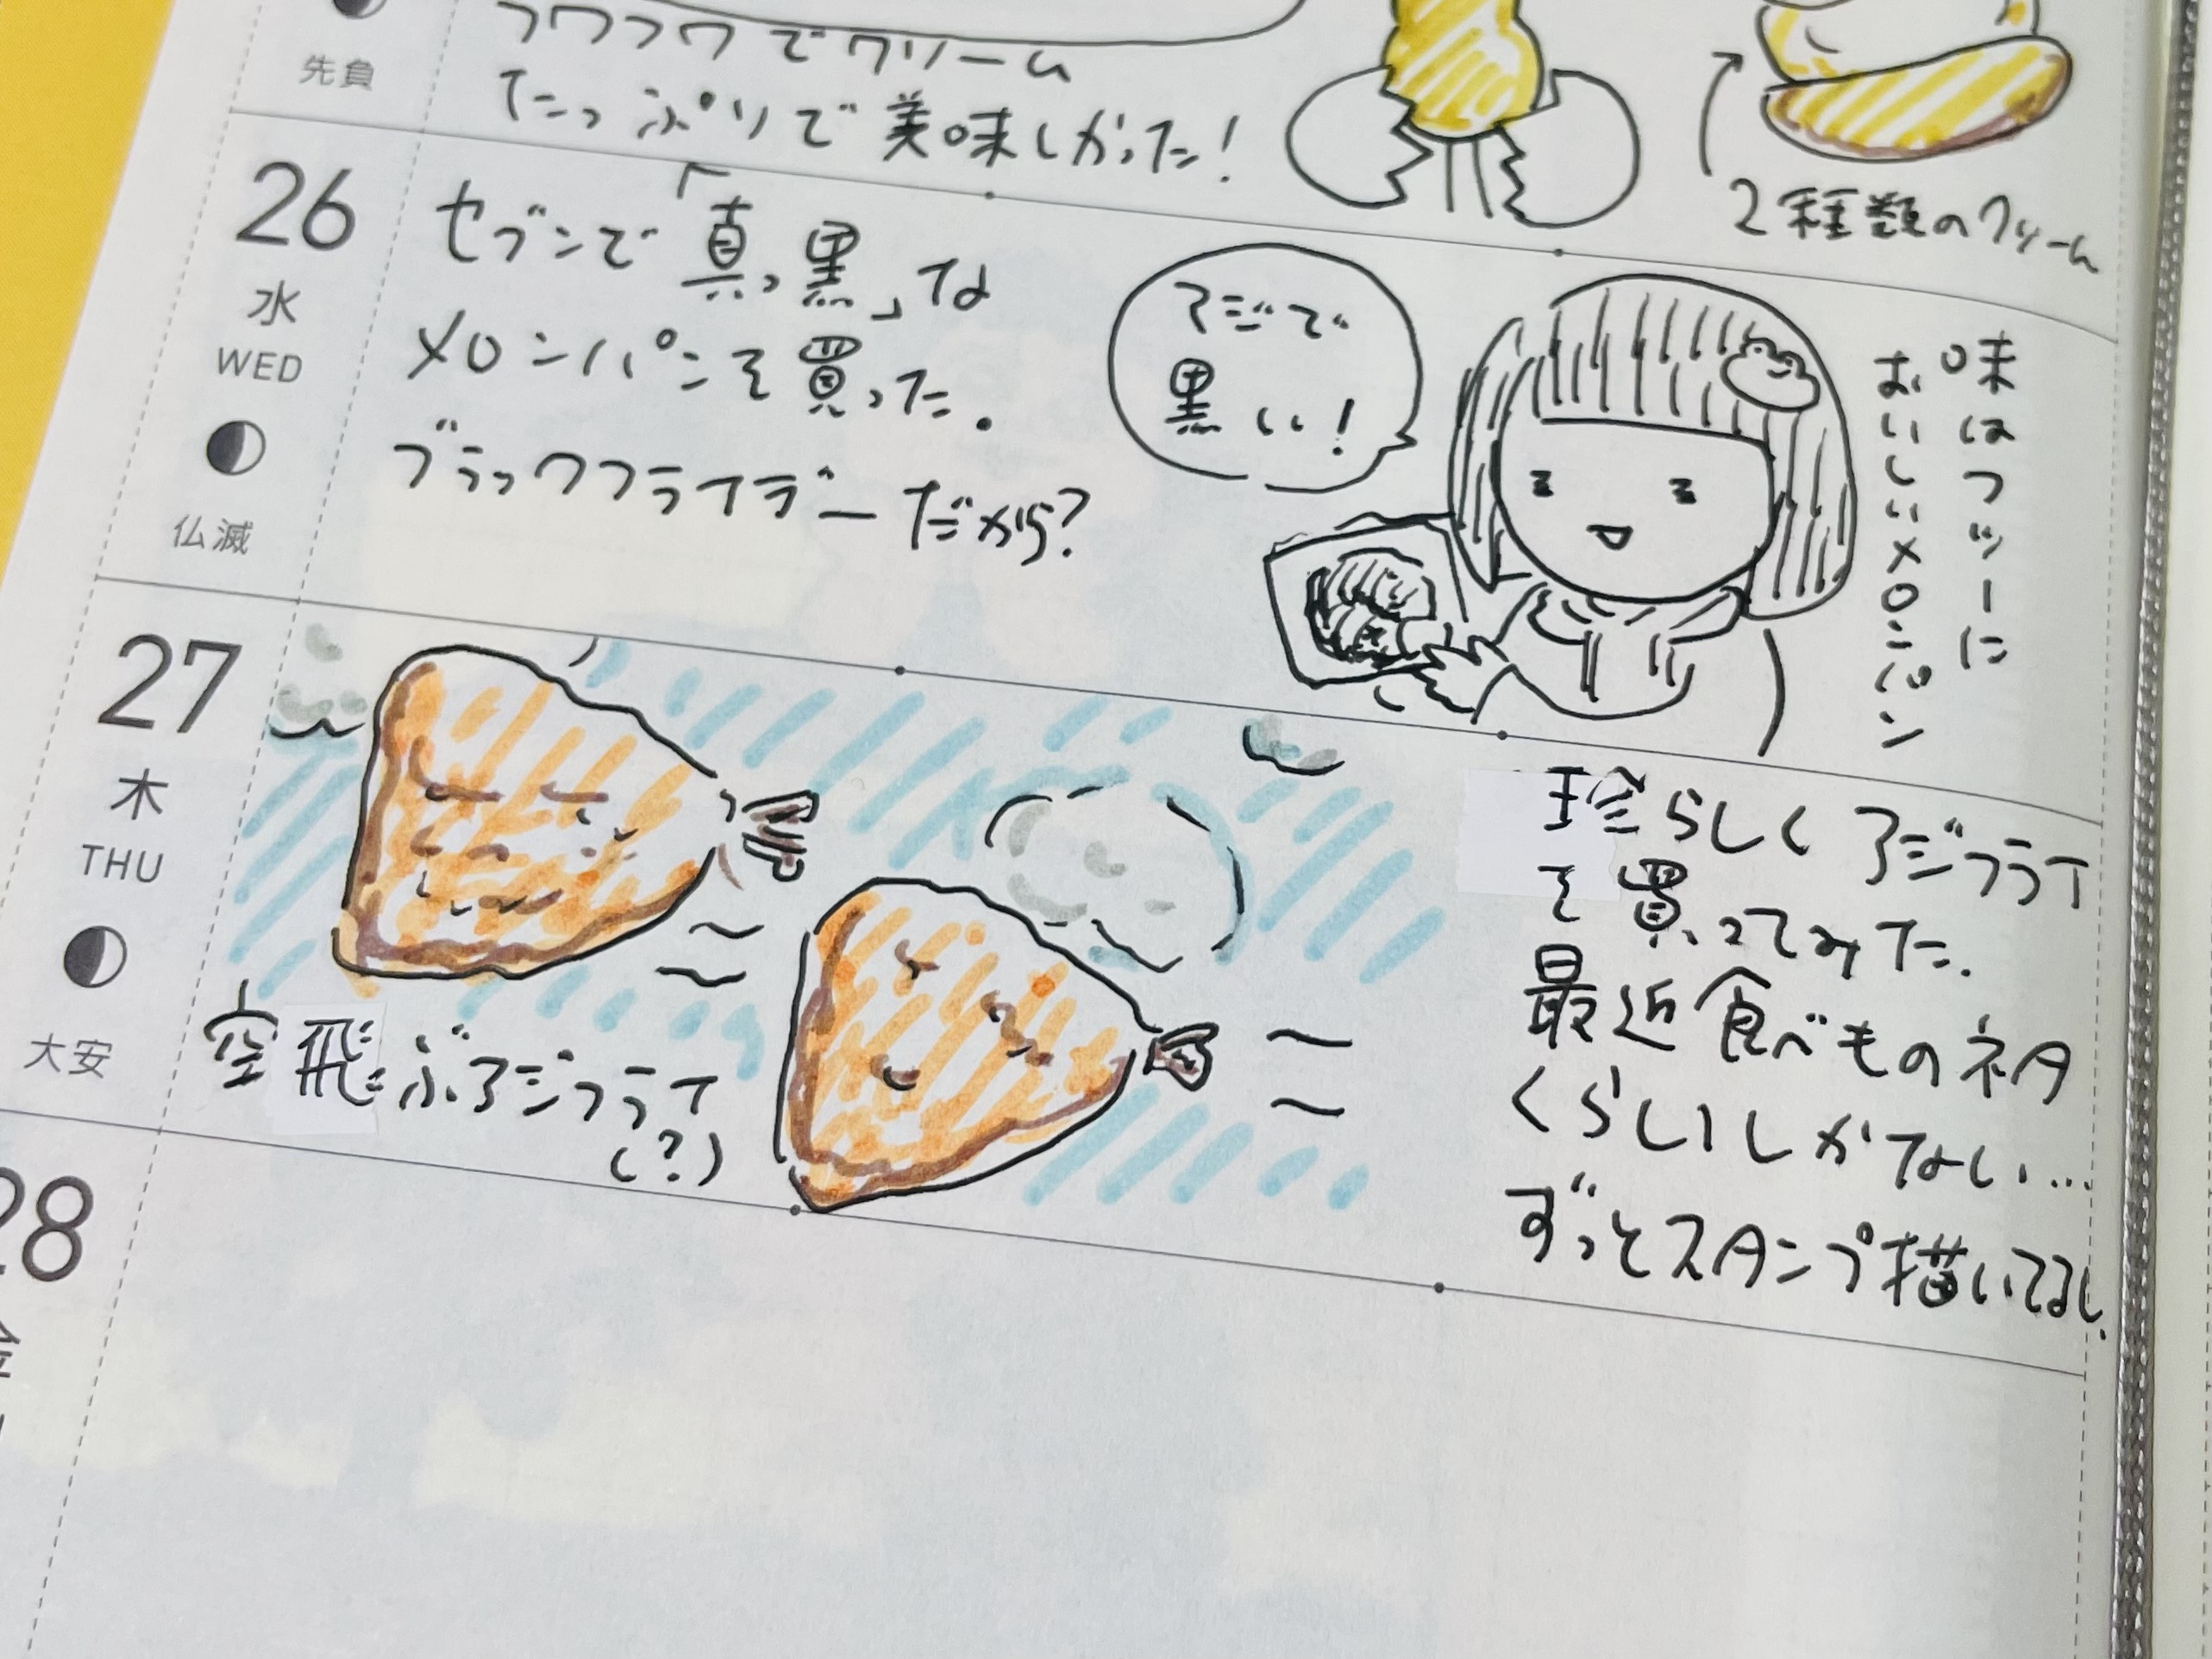 先負
フワフワでクリーム
たっぷりで美味しかった!
2種類のクリーム
26
水
WED
仏滅
セブンで「真っ黒」な
メロンパンを買った.
ブラックフライデーだから?
マジで
黒い!
味はフツーに
おいしいメロンパン
27
木
THU
大安
空飛ぶアジフライ
(?)
珍らしくアジフライ
を買ってみた.
最近食べものネタ
くらいしかない…
ずっとスタンプ描いてるし.
28
金